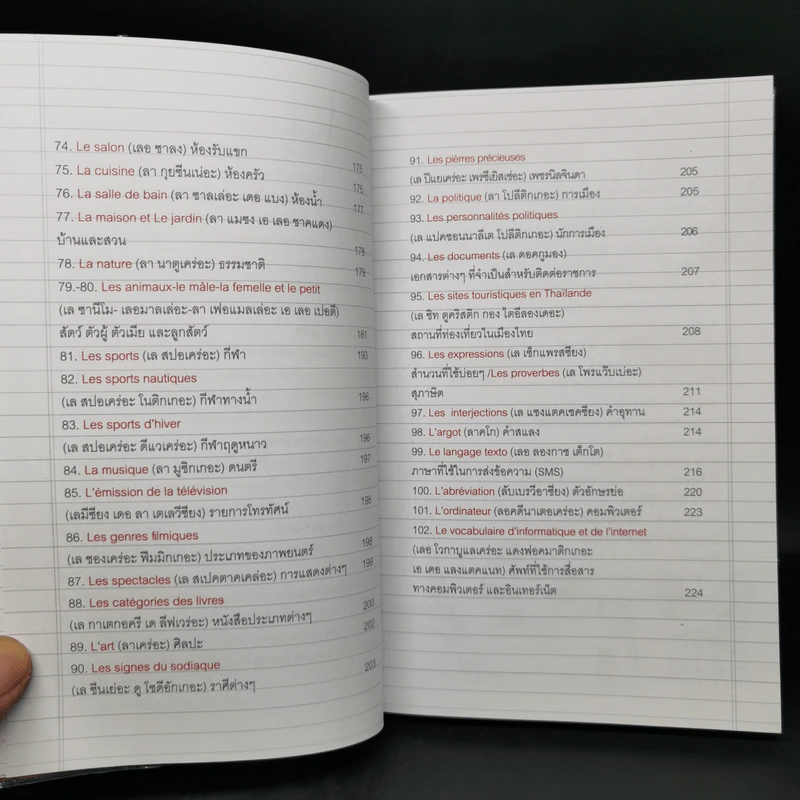 74. Le salon (เลอ ซาลง) ห้องรับแขก 175
75. La cuisine (ลา กุยซีนเน่อะ) ห้องครัว 175
76. La salle de bain (ลา ซาลเล่อะ เดอ แบง) ห้องน้ำ 177
77. La maison et Le jardin (ลา แมซง เอ เลอ ซาคแดง)
บ้านและสวน 178
78. La nature (ลา นาตูเคร่อะ) ธรรมชาติ 179
79.-80. Les animaux-le mâle-la femelle et le petit
(เล ซานีโม- เลอมาลเล่อะ-ลา เฟอแมลเล่อะ เอ เลอ เปอตี)
สัตว์ ตัวผู้ ตัวเมีย และลูกสัตว์ 181
81. Les sports (เล สปอเคร่อะ) กีฬา 193
82. Les sports nautiques
(เล สปอเคร่อะ โนติกเกอะ) กีฬาทางน้ำ 196
83. Les sports d'hiver
(เล สปอเคร่อะ ดีแวเคร่อะ) กีฬาฤดูหนาว 196
84. La musique (ลา มูซิกเกอะ) ดนตรี 197
85. L'émission de la télévision
(เลมีซียง เดอ ลา เตเลวีซียง) รายการโทรทัศน์ 198
86. Les genres filmiques
(เล ซองเคร่อะ ฟิมมิกเกอะ) ประเภทของภาพยนตร์ 198
87. Les spectacles (เล สเปคตาคเคล่อะ) การแสดงต่างๆ 199
88. Les catégories des livres
(เล กาเตกอครี เด ลีฟเวร่อะ) หนังสือประเภทต่างๆ 200
89. L'art (ลาเคร่อะ) ศิลปะ 202
90. Les signes du sodiaque
(เล ซีนเย่อะ ดู โซดีอักเกอะ) ราศีต่างๆ 203
91. Les pièrres précieuses
(เล ปีแยเคร่อะ เพรซีเยิสเซ่อะ) เพชรนิลจินดา 205
92. La politique (ลา โปลีติกเกอะ) การเมือง 205
93. Les personnalités politiques
(เล แปคซอนนาลีเต โปลีติกเกอะ) นักการเมือง 206
94. Les documents (เล ดอคกูมอง)
เอกสารต่างๆ ที่จำเป็นสำหรับติดต่อราชการ 207
95. Les sites touristiques en Thaïlande
(เล ซิท ตูคริสติก กอง ไตอีลองเดอะ)
สถานที่ท่องเที่ยวในเมืองไทย 208
96. Les expressions (เล เซ็กแพรสซียง)
สำนวนที่ใช้บ่อยๆ /Les proverbes (เล โพรแว๊บเบ่อะ)
สุภาษิต 211
97. Les interjections (เล แซงแตคเชคซียง) คำอุทาน 214
98. L'argot (ลาคโก) คำสแลง 214
99. Le langage texto (เลอ ลองกาซ เต็กโต)
ภาษาที่ใช้ในการส่งข้อความ (SMS) 216
100. L'abréviation (ลับเบรวีอาซียง) ตัวอักษรย่อ 220
101. L'ordinateur (ลอคดีนาเตอเคร่อะ) คอมพิวเตอร์ 223
102. Le vocabulaire d'informatique et de l'internet
(เลอ โวกาบูแลเคร่อะ แดงฟอคมาติกเกอะ
เอ เดอ แลงแตคแนท) ศัพท์ที่ใช้การสื่อสาร
ทางคอมพิวเตอร์ และอินเทอร์เน็ต 224